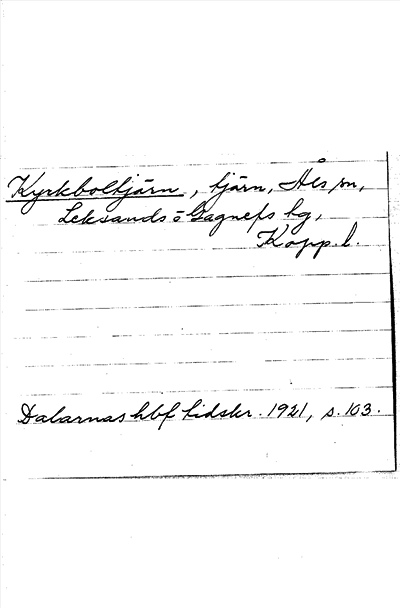 Kyrkboltjärn, tjärn, Åls sn,
Leksands o Gagnefs hg,
Kopp. l.
Dalarnas hbf tidskr. 1921, s. 103.